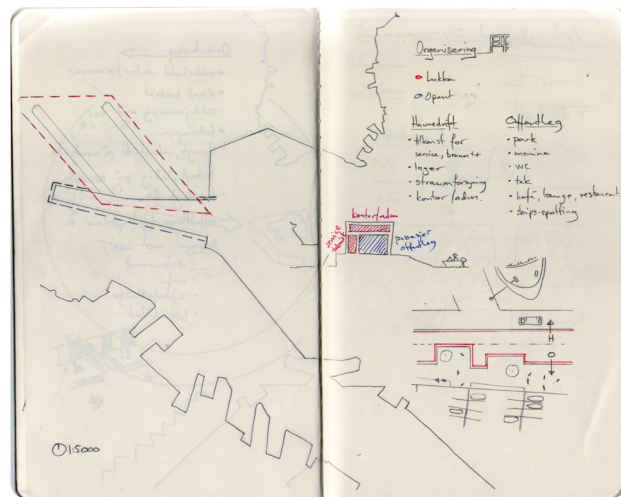 1:5000
Organisering
• Lukka
• Opent
Havnedrift
• tilkomst for
service, brann++
• lager
• straumforsyning
• kontor/adm.
Offentleg
• park
• marina
• WC
• tak
• kafé, lounge, restaurant
• skips-spotting
kontor/adm
service
passasjer
offentleg
H
O